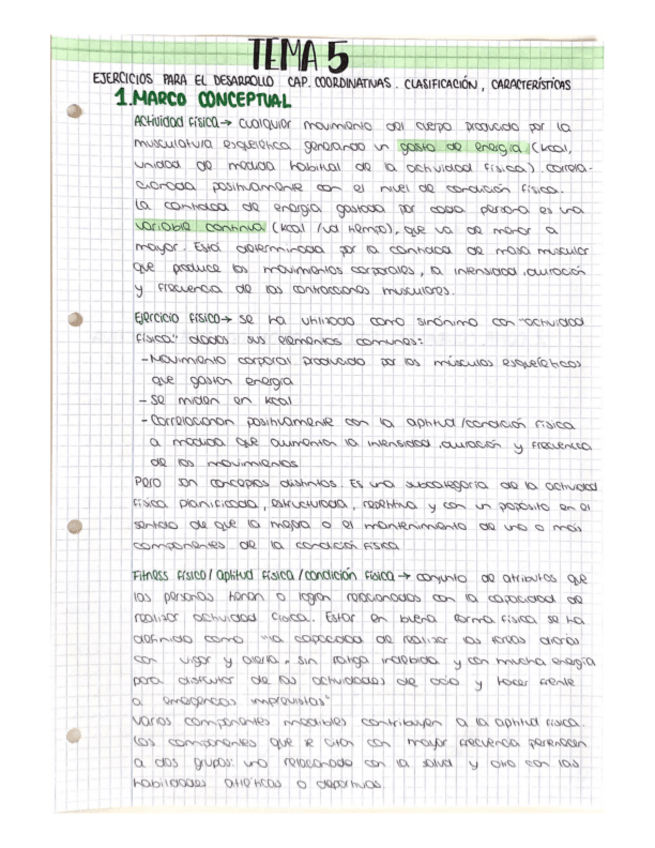 TEMA 5
EJERCICIOS PARA EL DESARROLLO CAP. COORDINATIVAS. CLASIFICACIÓN, CARACTERÍSTICAS
1. MARCO CONCEPTUAL
Actividad física → cualquier movimiento del cuerpo producido por la
musculatura esquelética generando un gasto de energía (kcal,
unidad de medida habitual de la actividad física). Correla-
cionada positivamente con el nivel de condición física.
La cantidad de energía gastada por cada persona es una
variable continua (kcal /ud tiempo), que va de menor a
mayor. Está determinada por la cantidad de masa muscular
que produce los movimientos corporales, la intensidad, duración
y frecuencia de las contracciones musculares.
Ejercicio físico → se ha utilizado como sinónimo con "actividad
física" dados sus elementos comunes:
- Movimiento corporal producido por los músculos esqueléticos
que gastan energía
- Se miden en kcal
- Correlacionan positivamente con la aptitud/condición física
a medida que aumentan la intensidad, duración y frecuencia
de los movimientos
Pero son conceptos distintos. Es una subcategoría de la actividad
física planificada, estructurada, repetitiva y con un propósito en el
sentido de que la mejora o el mantenimiento de uno o más
componentes de la condición física
Fitness físico/ aptitud física /condición física → conjunto de atributos que
las personas tienen o logran relacionados con la capacidad de
realizar actividad física. Estar en buena forma física se ha
definido como "la capacidad de realizar las tareas diarias
con vigor y alerta, sin fatiga indebida y con mucha energía
para disfrutar de las actividades de ocio y hacer frente
a emergencias imprevistas"
Varios componentes medibles contribuyen a la aptitud física.
Los componentes que se citan con mayor frecuencia pertenecen
a dos grupos: uno relacionado con la salud y otro con las
habilidades atléticas o deportivas.